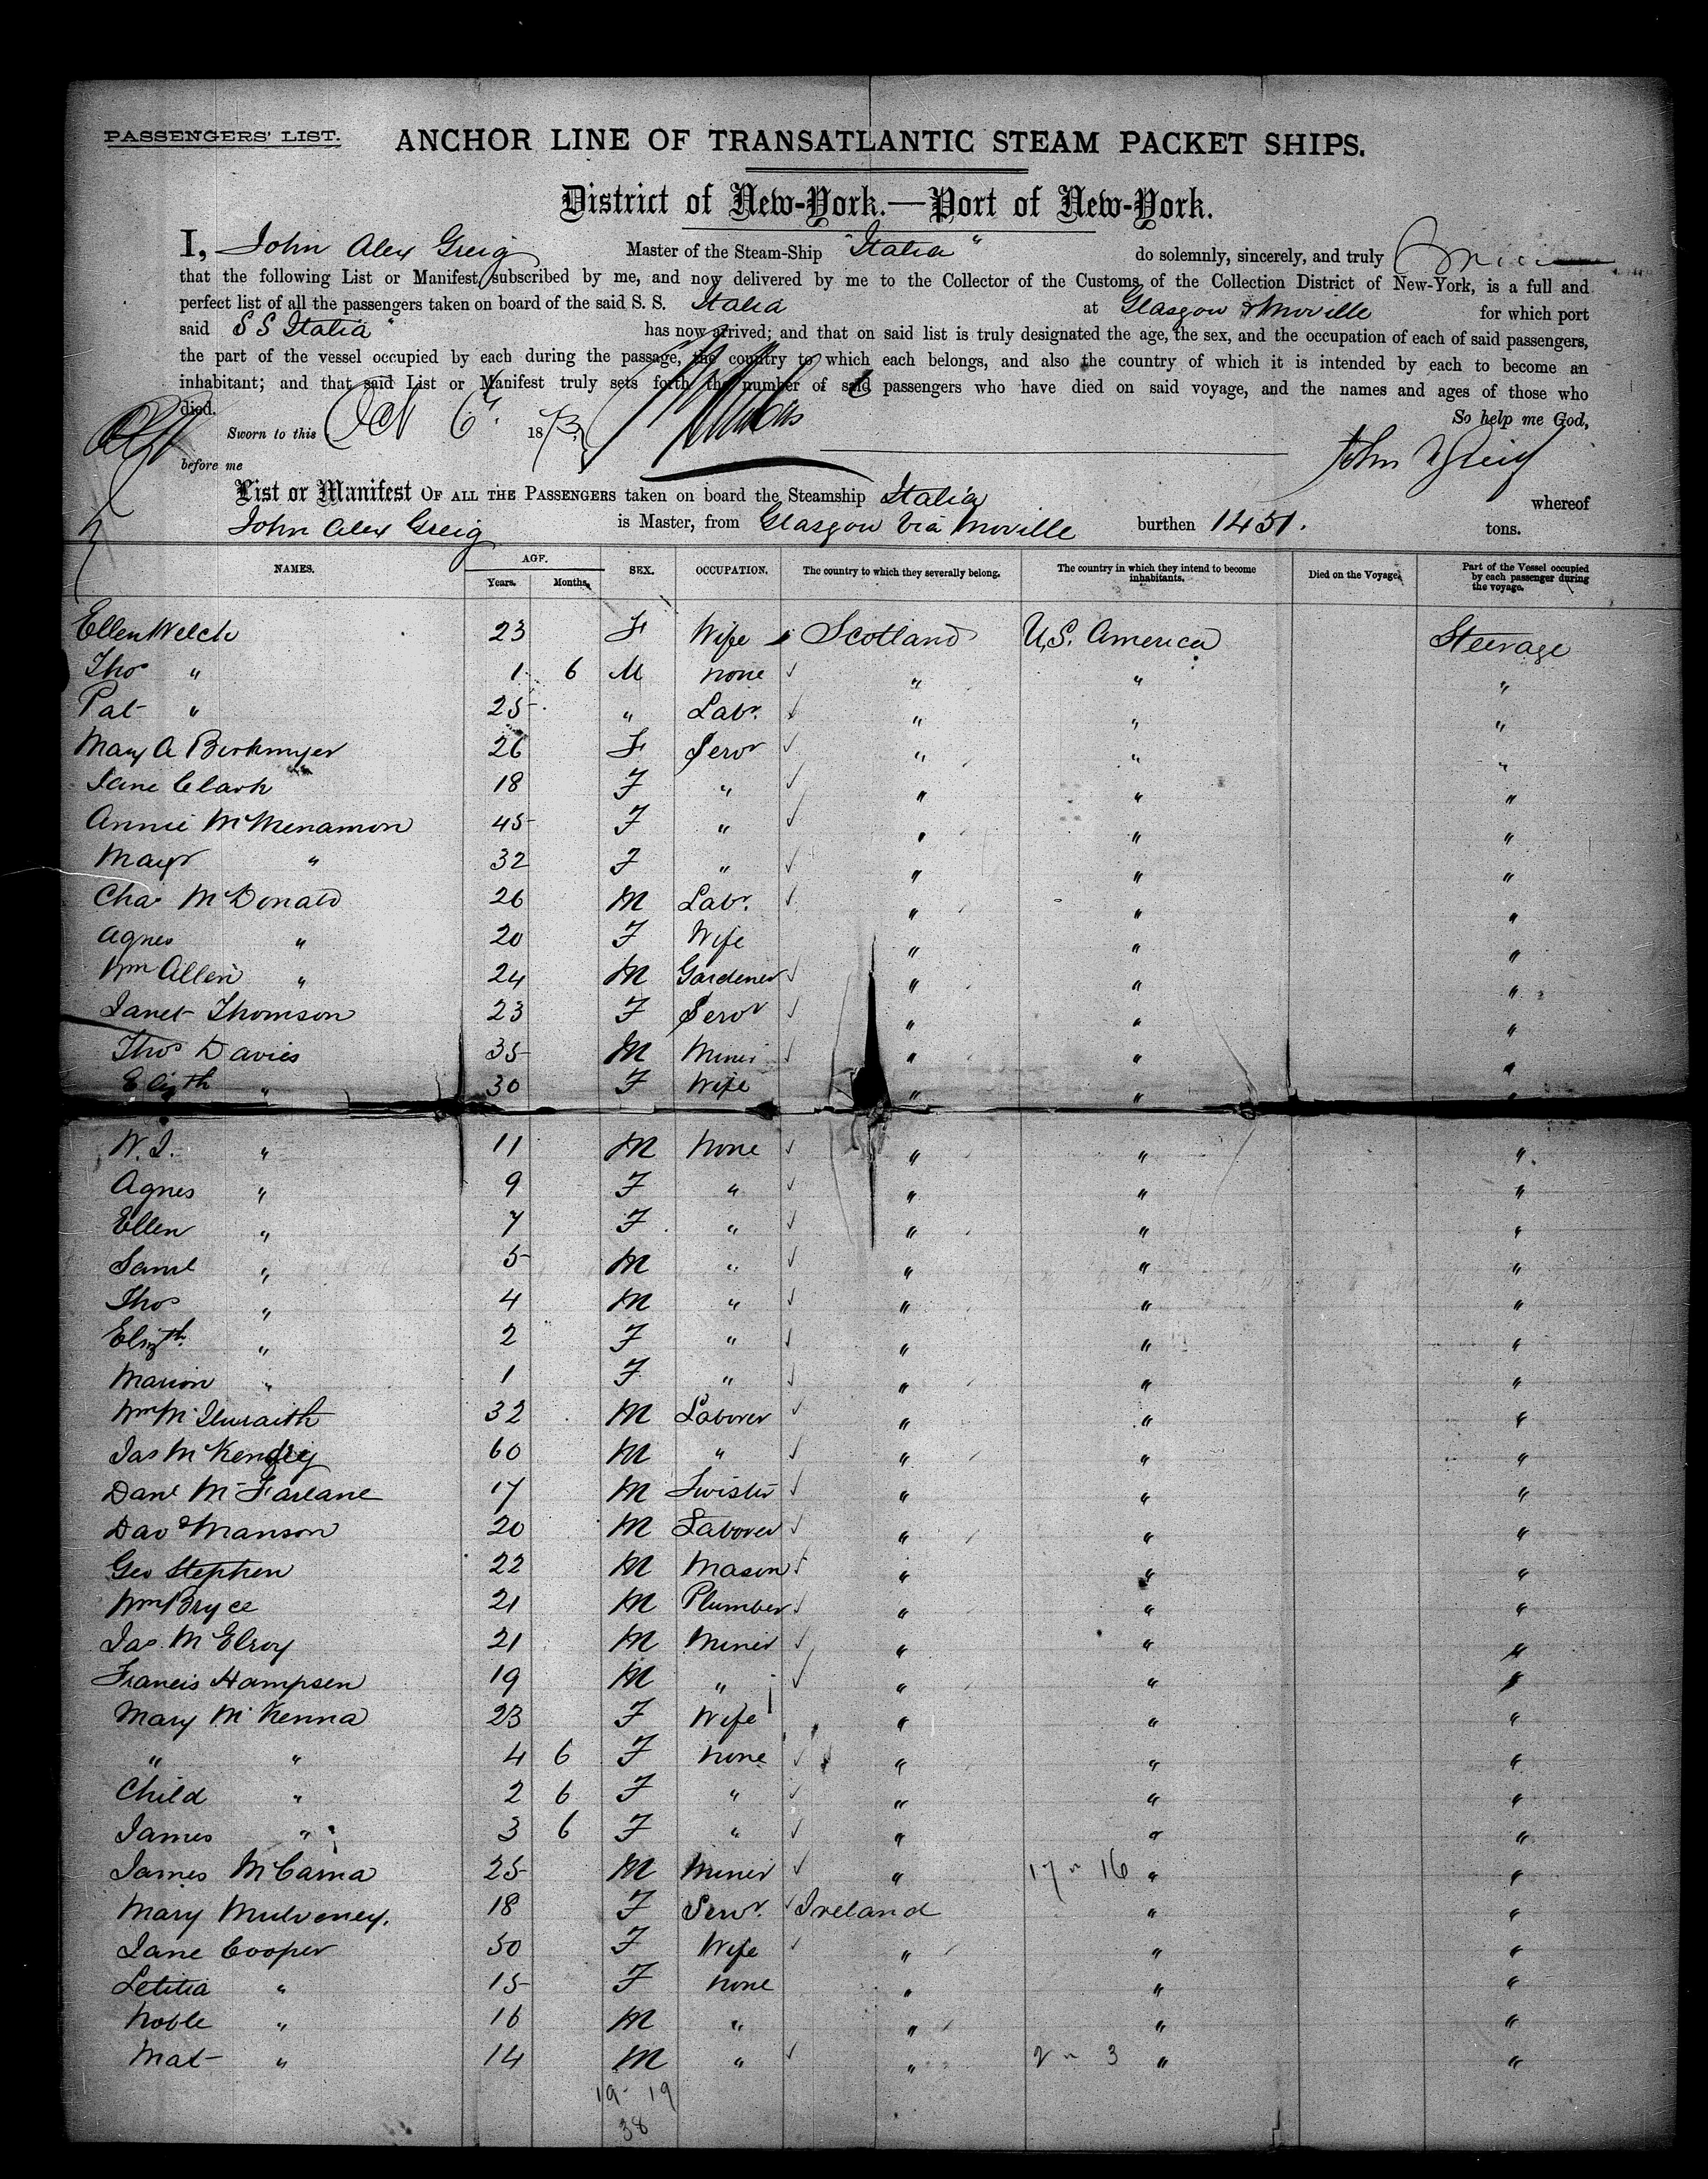 PASSENGERS' LIST. ANCHOR LINE OF TRANSATLANTIC STEAM PACKET SHIPS.
District of New-York.—Port of New-York.
I, John Alex Greig Master of the Steam-Ship "Italia" do solemnly, sincerely, and truly
that the following List or Manifest subscribed by me, and now delivered by me to the Collector of the Customs of the Collection District of New-York, is a full and
perfect list of all the passengers taken on board of the said S. S. Italia at Glasgow & Moville for which port
said S S Italia" has now arrived; and that on said list is truly designated the age, the sex, and the occupation of each of said passengers,
the part of the vessel occupied by each during the passage, the country to which each belongs, and also the country of which it is intended by each to become an
inhabitant; and that said List or Manifest truly sets forth the number of said passengers who have died on said voyage, and the names and ages of those who
died. So help me God,
Sworn to this Oct 6th 1873
before me John A Greig
List or Manifest OF ALL THE PASSENGERS taken on board the Steamship Italia whereof
John Alex Greig is Master, from Glasgow via Moville burthen 1451. tons.
NAMES. AGE. Years. Months. SEX. OCCUPATION. The country to which they severally belong. The country in which they intend to become inhabitants. Died on the Voyage. Part of the Vessel occupied by each passenger during the voyage.
Ellen Welch 23 F Wife Scotland U.S. America Steerage
Thos " 1 6 M none " " "
Pat " 25 " Labr. " " "
Mary A Birkmyer 26 F Servr " " "
Jane Clark 18 F " " " "
Annie McMenamon 45 F " " " "
Mary " 32 F " " " "
Chas McDonald 26 M Labr. " " "
Agnes " 20 F Wife " " "
Wm Allen " 24 M Gardener " " "
Janet Thomson 23 F Servr " " "
Thos Davies 35 M Miner " " "
Elizth " 30 F Wife " " "
W. J. " 11 M None " " "
Agnes " 9 F " " " "
Ellen " 7 F " " " "
Saml " 5 M " " " "
Thos " 4 M " " " "
Elizth " 2 F " " " "
Marion " 1 F " " " "
Wm McIlwraith 32 M Laborer " " "
Jas McKendry 60 M " " " "
Danl McFarlane 17 M Twister " " "
Davd Manson 20 M Laborer " " "
Geo Stephen 22 M Mason " " "
Wm Bryce 21 M Plumber " " "
Jas. McElroy 21 M Miner " " "
Francis Hampsen 19 M " " " "
Mary McKenna 23 F Wife " " "
" " 4 6 F none " " "
Child " 2 6 F " " " "
James " 3 6 F " " " "
James McCama 25 M Miner " 17 " 16 " "
Mary Mulveney. 18 F Servr. Ireland " "
Jane Cooper 50 F Wife " " "
Letitia " 15 F none " " "
Noble " 16 M " " " "
Mat " 14 M " " 2 " 3 " "
19 - 19
38